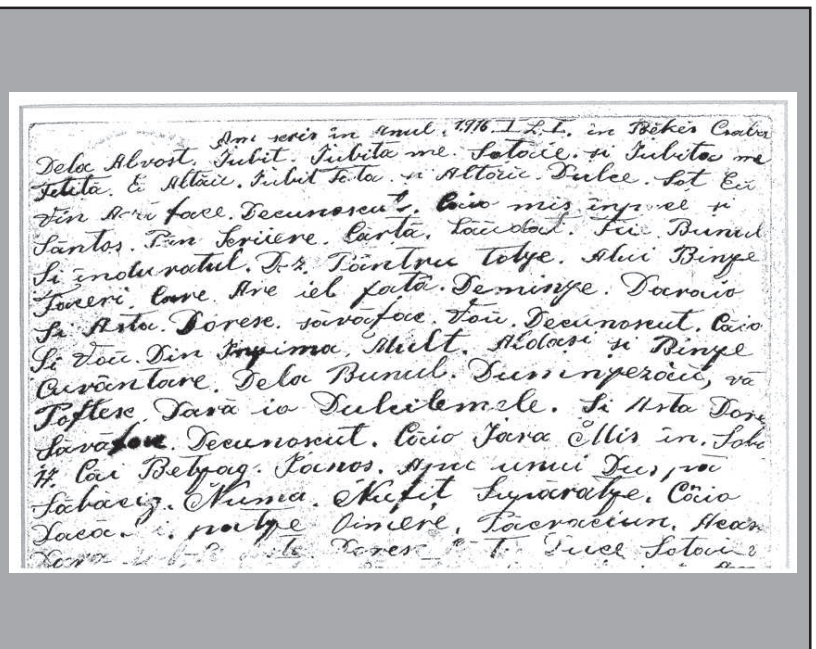 Am scris in anul. 1916. I L. I. in Békés Csaba
Dela Alvost. Iubit. Iubita me. Sotoie. si Iubita me
Fetita. Ei Altaic. Iubit Tata. si Altoic. Dulce. Sot Eu
Vin A face. Decunoscut. Caio mis inpace si
Sântos. Pin Scriiere. Carta. Laudat. Fii. Bunul
Si induratul. D-z. Pântru totye. Alui Binye
Faceri. Care Are iel fatâ. Deminye. Daraio
Si Asta. Doresc. sâvâfac. Vou. Decunoscut. Câio
Si Vou. Din Inyima. Mult. Aldasi si Binye
Cuvântare. Dela Bunul. Duminyezâu, vâ
Poftesc. Darâ io Dulcilemele. Si Asta Dore
Savâ Decunoscut. Câio Iara Mis in.
H. Cai Betyag. Ianos. Apu unui Dus, pâ
Numa. Nufit Supâratye. Câio
Dacâ. i. patye Viniere, Pâcraciun. Acas
Dara Doresc Duce Sotoie